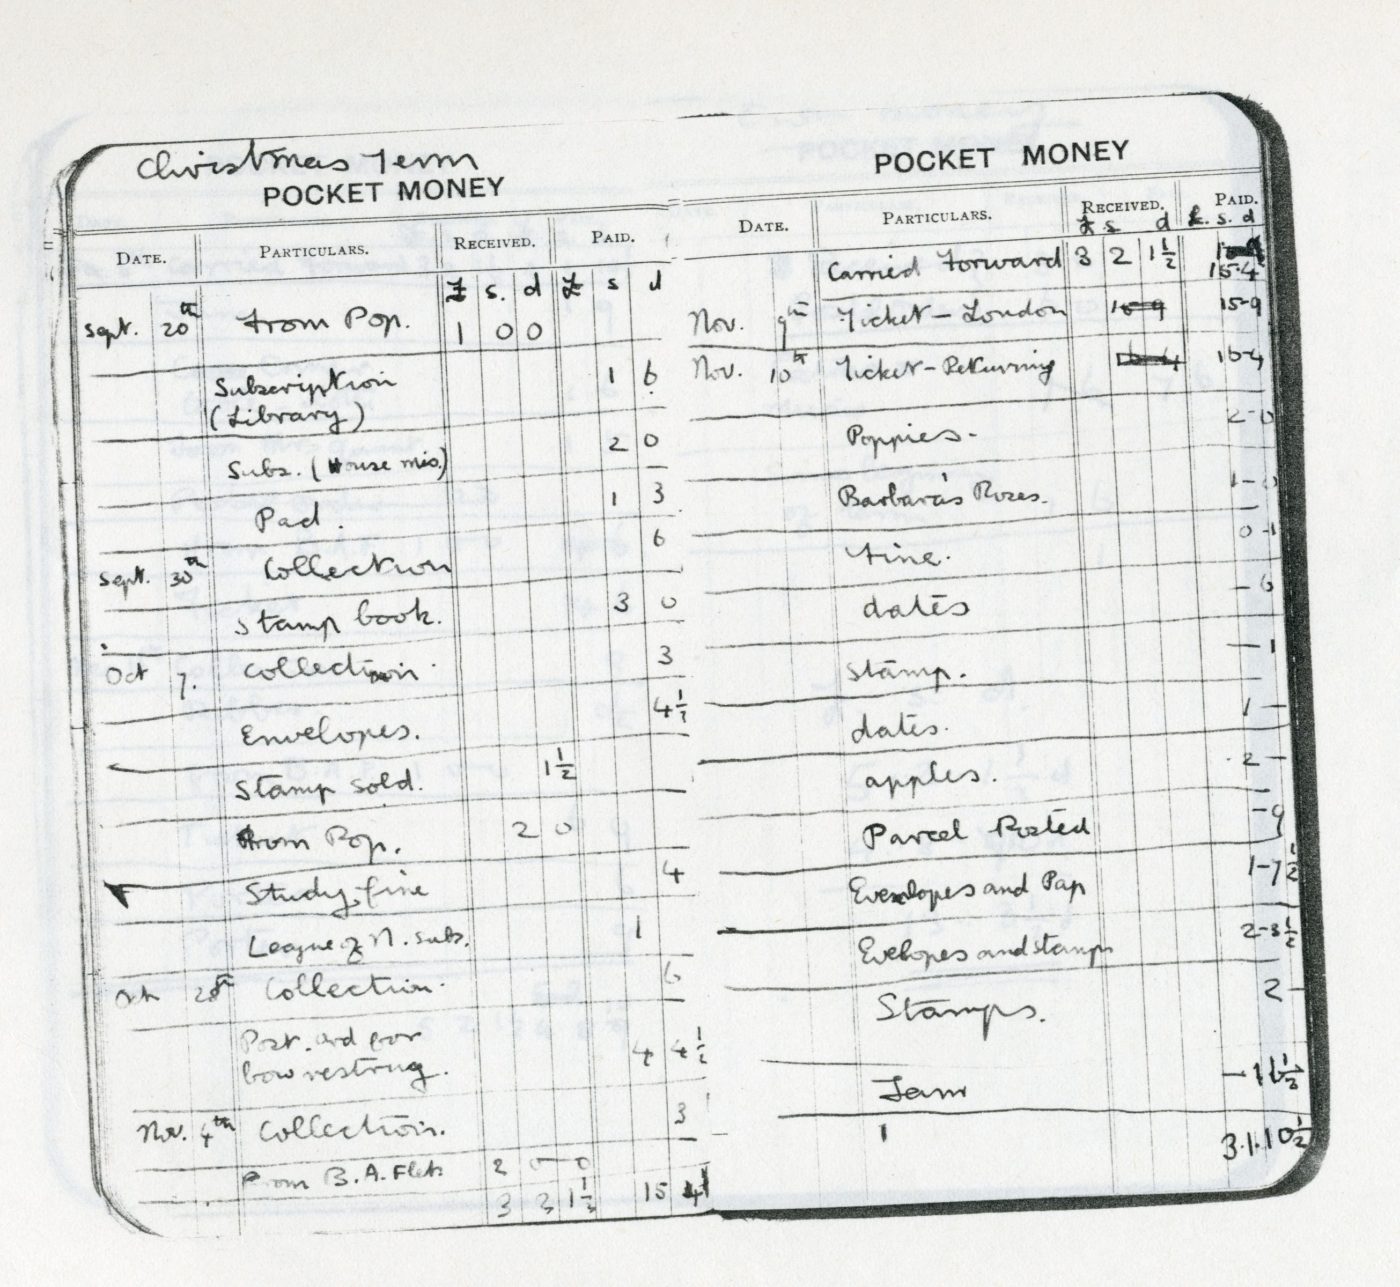 Christmas Term
POCKET MONEY
DATE. PARTICULARS. RECEIVED. PAID.
£ s. d £ s d
Sept. 20th From Pop. 1 0 0
Subscription 1 6
(Library)
Subs. (House mis.) 2 0
Pad. 1 3
Sept. 30th Collection 6
Stamp book. 3 0
Oct 7. Collection 3
Envelopes. 4½
Stamp sold. 1½
From Pop. 2 0
Study fine 4
League of N. subs. 1
Oct 28th Collection. 6
Post. and for 4 4½
bow restrug.
Nov. 4th Collection. 3
From B.A. 2 0 0
3 2 1½ 15 4
POCKET MONEY
DATE. PARTICULARS. RECEIVED. PAID.
£ s d £. s. d
Carried Forward 3 2 1½ 15-4
Nov. 9th Ticket - London 15-9
Nov. 10th Ticket - Returning 16-4
Poppies - 2-0
Barbara's Roses. 1-0
Fine. 0-1
dates - 6
Stamp. - 1
dates. 1 -
apples. 2 -
Parcel Posted - 9
Evexlopes and Pap 1-7½
Evelopes and stamps 2-3½
Stamps. 2 -
Jam - 1
3.1.10½